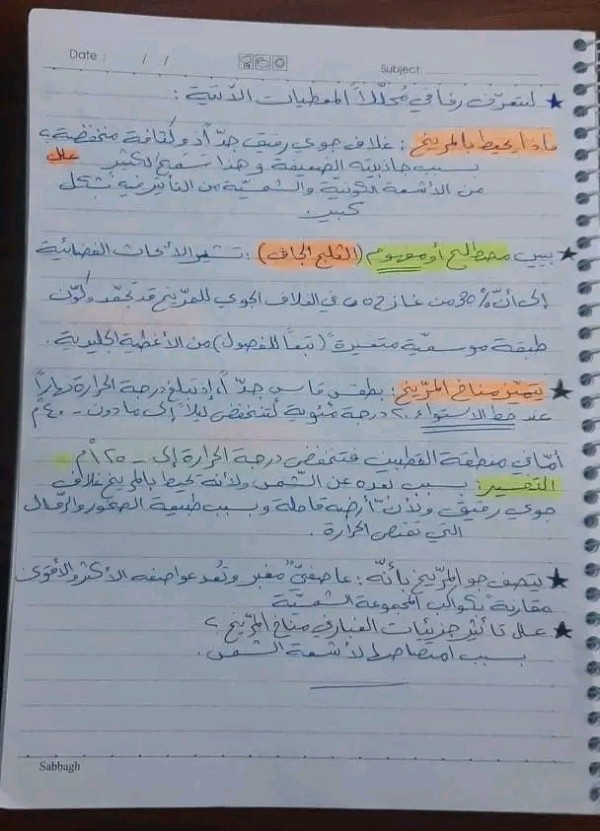 Date : / /
Subject:
لنتعرّف رفاقي مُحلّلاً المعطيات الآتية :
ماذا يحيط بالمريخ : غلاف جوي رقيق جدّاً ذو كثافة منخفضة ،
بسبب جاذبيته الضعيفة وهذا يسمح لكثير علل
من الأشعة الكونية والشمسيّة من التأثير فيه بشكل
كبير
يبين مصطلح أو مفهوم (الثلج الجاف) : تشير الأبحاث الفضائية
إلى أنّ 30% من غاز co2 في الغلاف الجوي للمرّيخ قد تجمّد وكوّن
طبقة موسميّة متغيرة (تبعاً للفصول) من الأغطية الجليدية .
يتميّز مناخ المرّيخ : بطقس قاسٍ جدّاً ، إذ تبلغ درجة الحرارة نهاراً
عند خط الاستواء ٢٠ درجة مئوية لتنخفض ليلاً إلى ما دون - ٤٠ م°
أمّا في منطقة القطبين فتنخفض درجة الحرارة إلى - ١٢٥ م°
التفسير : بسبب بعده عن الشمس ولأنه يحيط بالمريخ غلاف
جوي رقيق ولأنّ أرضه قاحلة وبسبب طبيعة الصخور والرمال
التي تمتص الحرارة .
يتصف جو المرّيخ بأنّه : عاصفيّ مغبر وتُعد عواصفه الأكثر والأقوى
مقارنة بكواكب المجموعة الشمسيّة
علل تأثير جزيئات الغبار في مناخ المرّيخ ؟
بسبب امتصاصها لأشعة الشمس .
Sabbagh